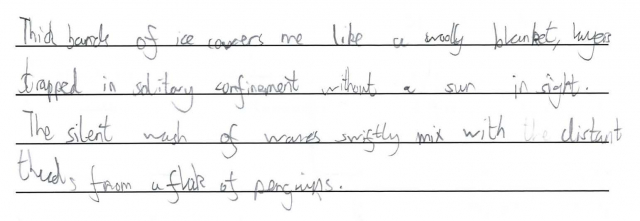 Thick bands of ice covers me like a woolly blanket, layers
trapped in solitary confinement without a sun in sight.
The silent wash of waves swiftly mix with the distant
thuds from a flok of penguins.